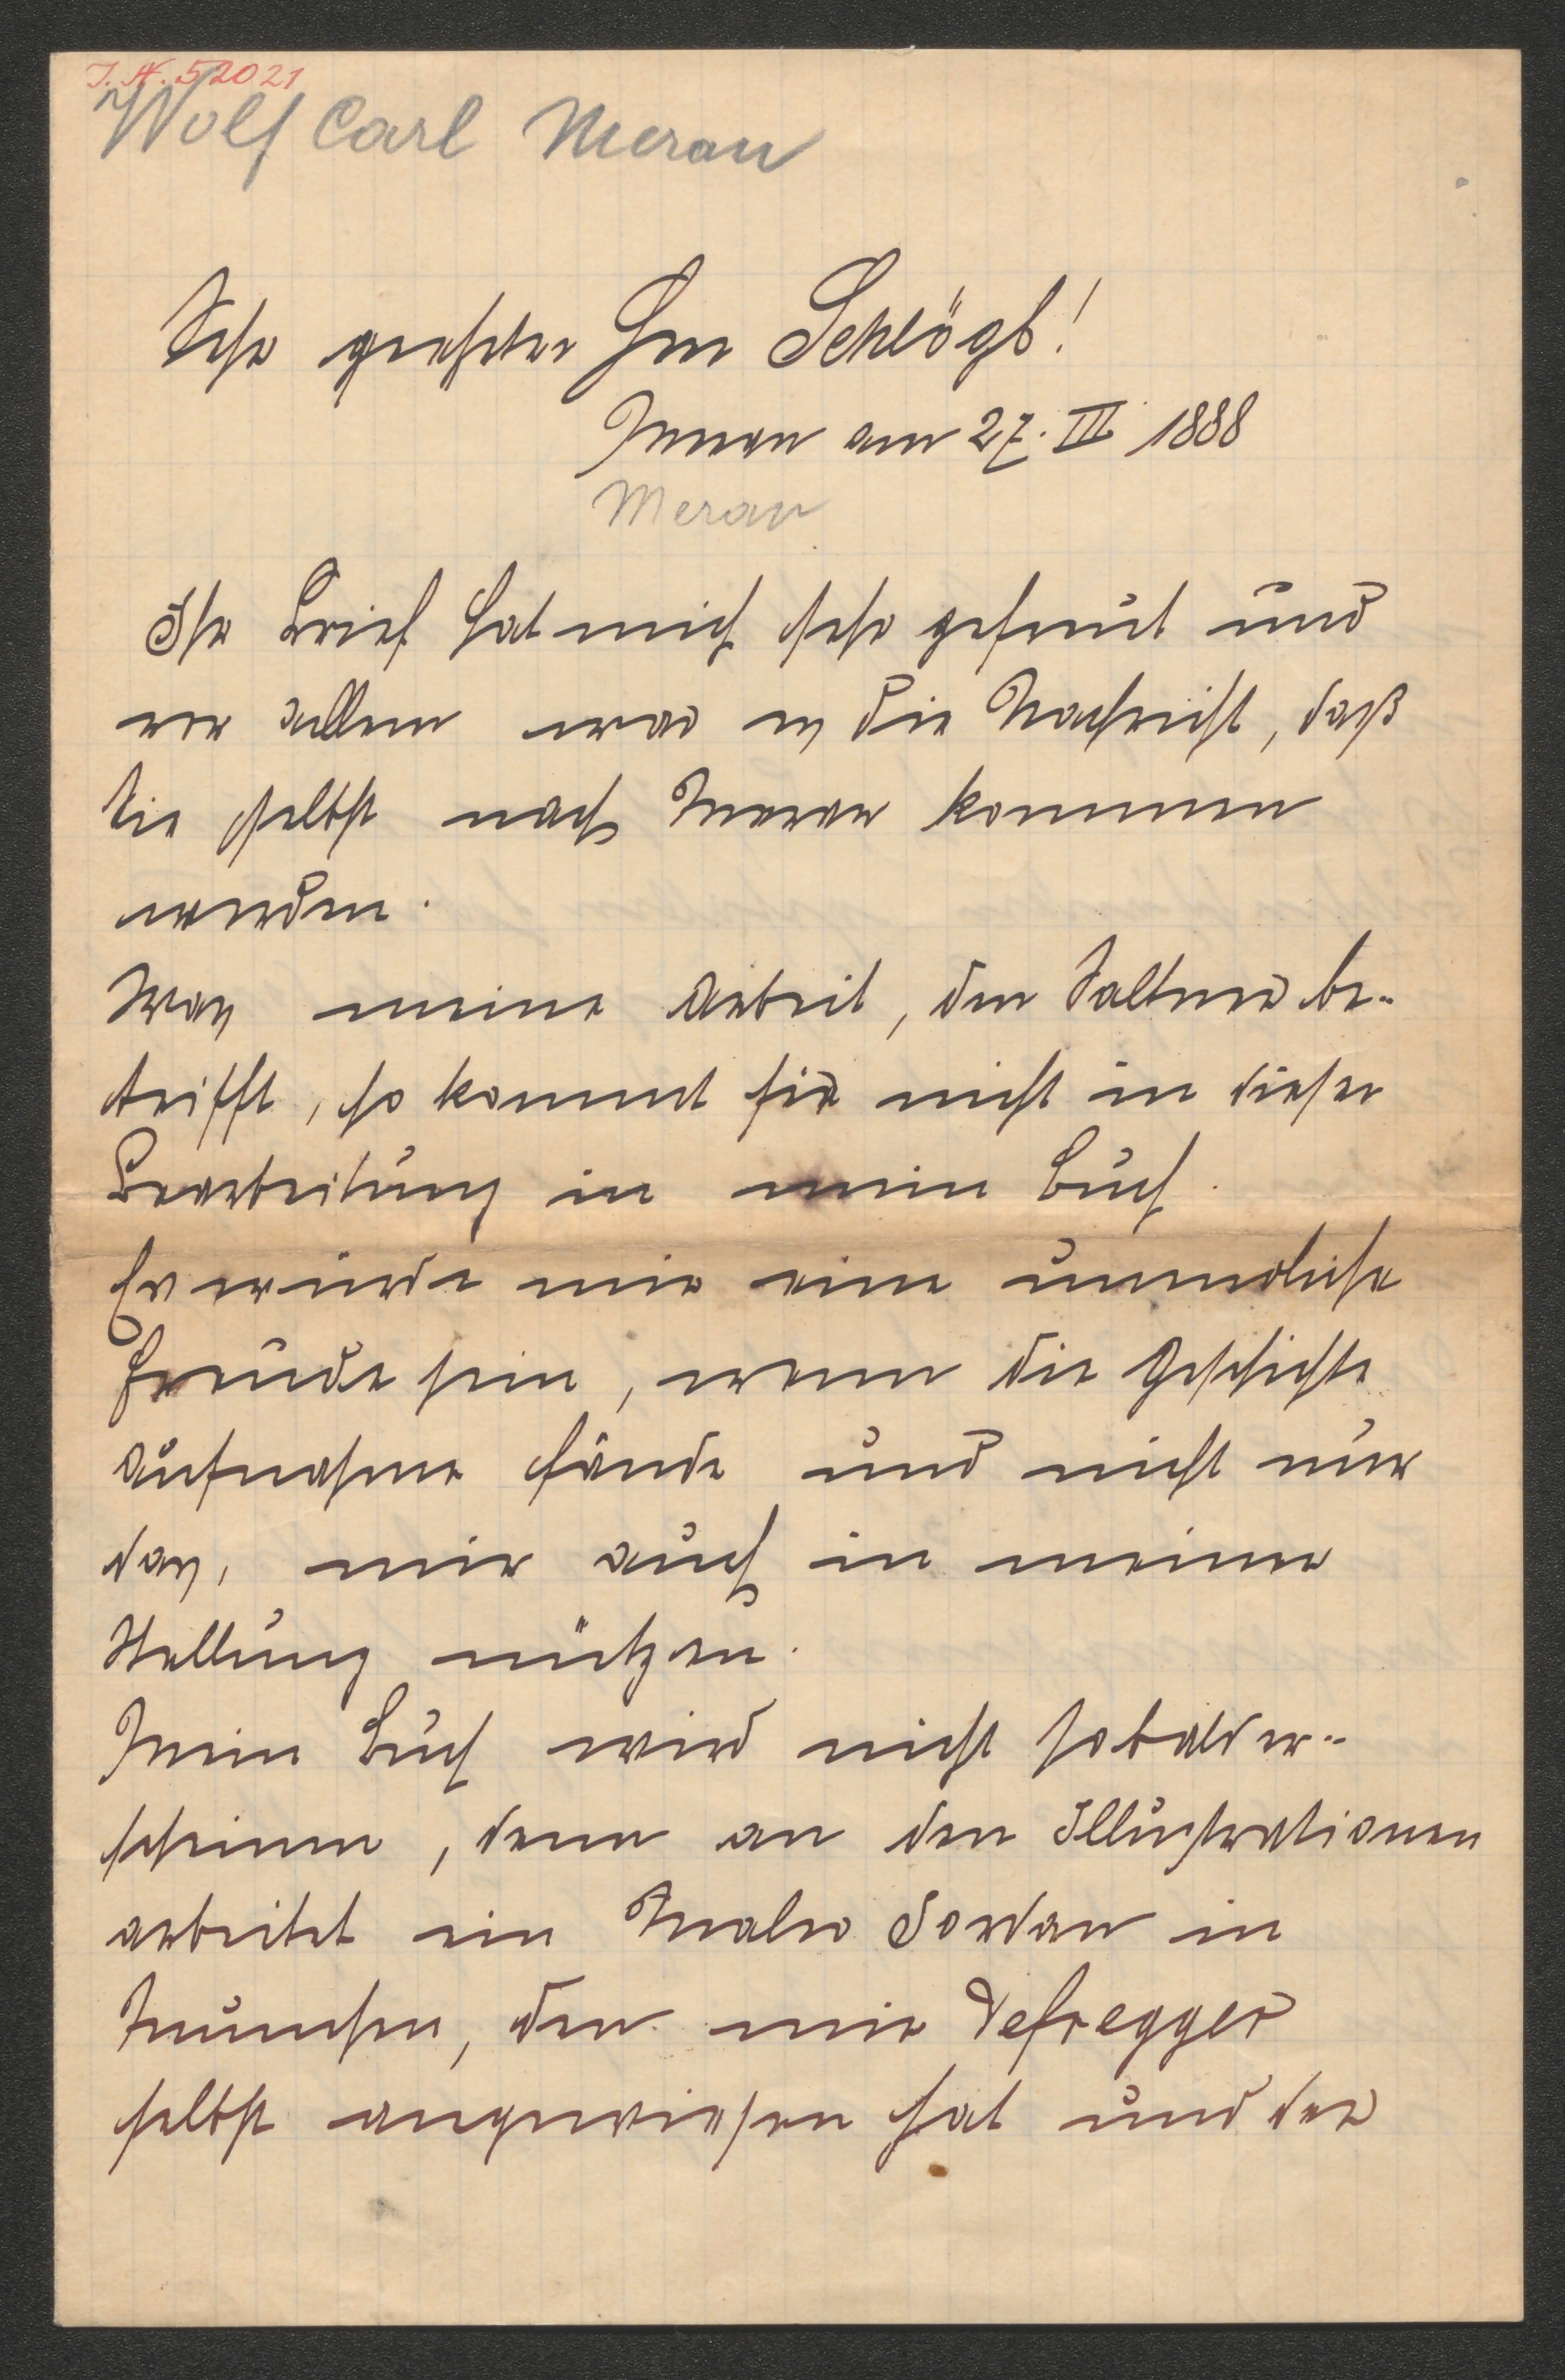 I.N. 52021
Wolf Carl Meran
Sehr geehrter Herr Schlögl!
Meran am 27. III 1888
Meran
Ihr Brief hat mich sehr gefreut und
vor allem war es die Nachricht, daß
Sie selbst nach Meran kommen
werden.
Was meine Arbeit, den Saltner be-
trifft, so kommt sie nicht in dieser
Bearbeitung in mein Buch.
Es würde mir eine unendliche
Freude sein, wenn die Geschichte
Aufnahme fände und nicht nur
das, mir auch in meiner
Stellung nützen.
Mein Buch wird nicht sobald er-
scheinen, denn an den Illustrationen
arbeitet ein Maler Jordan in
München, den mir Defregger
selbst angewiesen hat und der